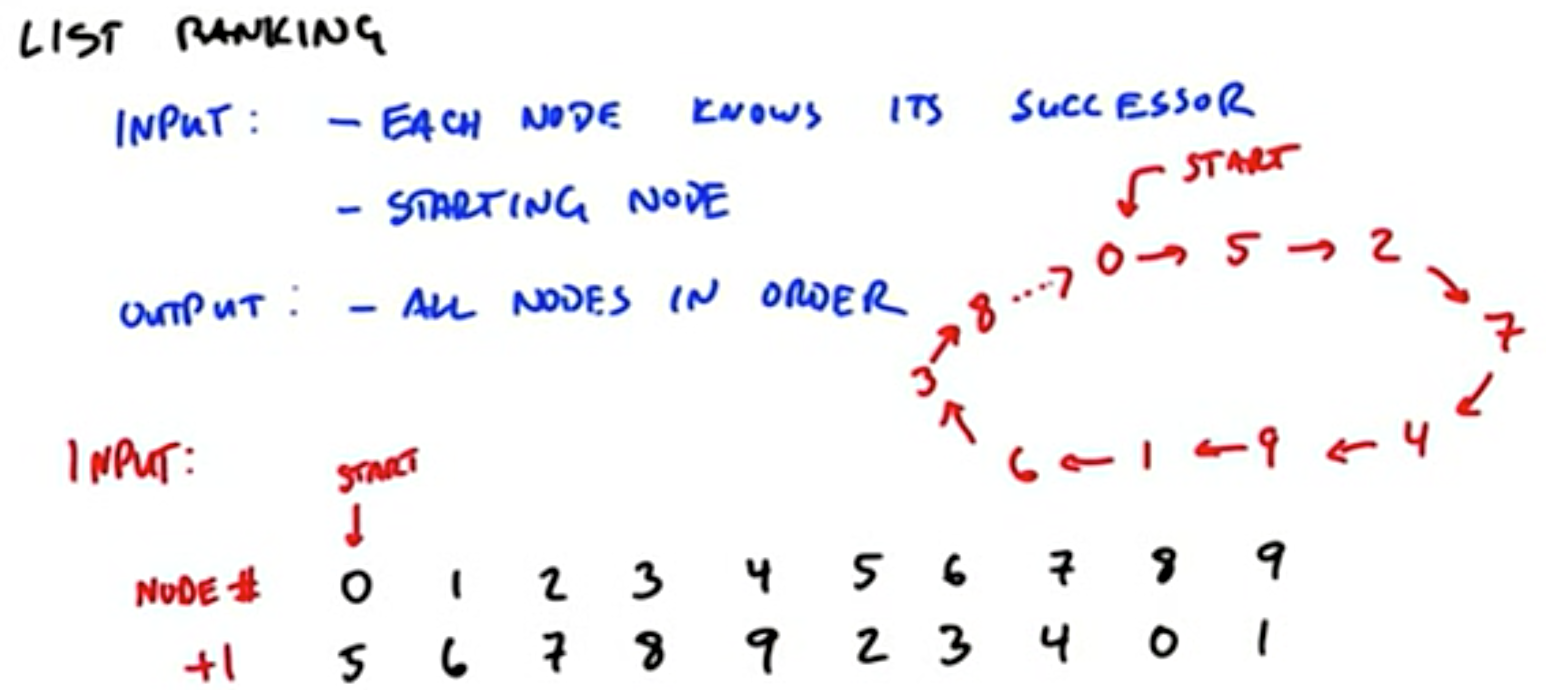 LIST RANKING
INPUT: - EACH NODE KNOWS ITS SUCCESSOR
- STARTING NODE
OUTPUT: - ALL NODES IN ORDER
START
0 → 5 → 2
8 ⋯→
7
3
6 ← 1 ← 9 ← 4
INPUT:
START
NODE # 0 1 2 3 4 5 6 7 8 9
+1 5 6 7 8 9 2 3 4 0 1